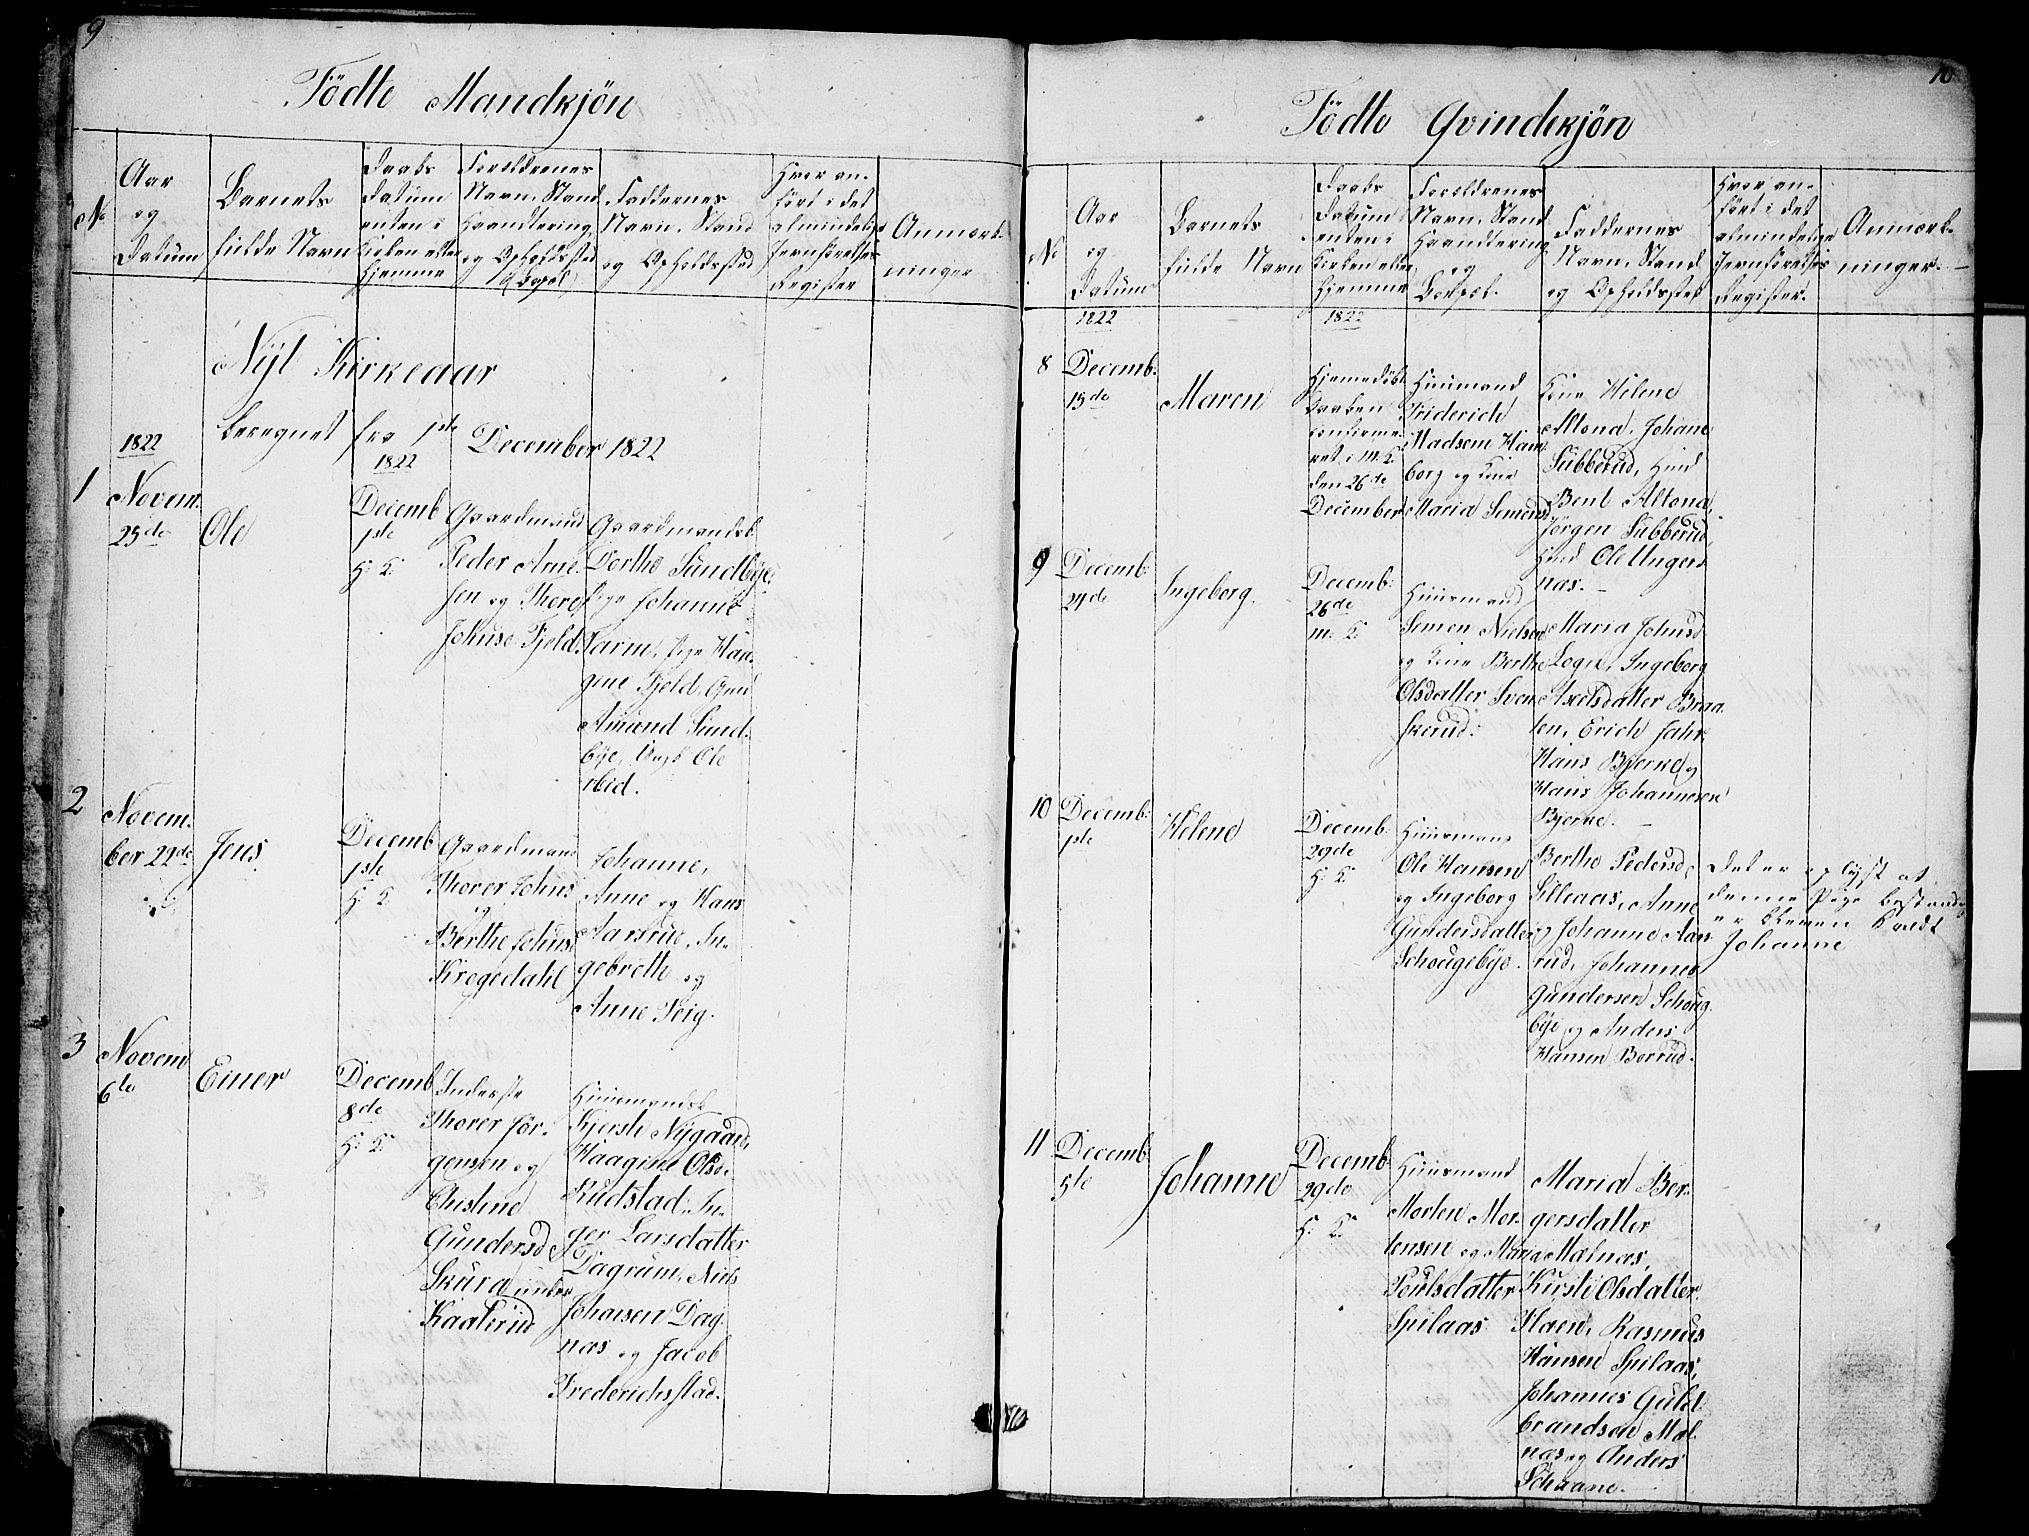 9
Födte Mandkjön
No
Aar
og
Datum
Barnets
fulde Navn
Daabs
Datum
enten i
Kirken eller
Hjemme
Forældrenes
Navn, Stand
Haandtering
og Opholdssted
(Bopæl)
Faddernes
Navn, Stand
og Opholdssted
Hvor an-
fört i det
almindelige
Jevnförelses
Register
Anmærk-
ninger
Nyt Kirkeaar
beregnet fra 1ste December 1822
1822
1822
1
Novem.
25de
Ole
Decemb
1ste
H: K:
Gaardmand
Peder Arne
sen og There
Johnsd Fjeld
Gaardmandsk.
Dorthe Sundbye,
Pige Johanne
Tarm, Pige Han-
gine Fjeld, Gmd
Amund Sund-
bye, Ungk Ole
2
Novem-
ber 22de
Jens.
Decemb
1ste
H: K
Gaardmand
Thorer Johns
og
Berthe Johns
Krogedahl
Johanne,
Anne og Hans
Aarsrud, In-
gebreth og
Anne Teig.
3
Novem
6te
Einer
Decemb
8de
H: K:
Inderste
Thorer Jör-
gensen og
Christine
Gundersd
Skura under
Kaaterud
Huusmandsk
Kjersti Nygaard,
Haagine Olsd.
Rudstad, In-
ger Larsdatter
Dagrum, Niels
Johansen Dag-
nas og Jacob
Frederichsstad.
10
Födte Qvindekjön
No
Aar
og
Datum
Barnets
fulde Navn
Daabs
Datum
enten i
Kirken eller
Hjemme
Forældrenes
Navn, Stand
Haandtering
og
Bopæl.
Faddernes
Navn, Stand
og Opholdssted
Hvor an-
fört i det
almindelige
Jevnförelses
Register.
Anmærk-
ninger.
1822
1822
8
Decemb:
15de
Maren
Hjemedöbt
Daaben
confirme-
ret i M. K.
den 26de
December
Huusmand
Friderich
Madsen Ham
borg og Kone
Maria Simensd
Kone Helene
Mona, Johane
Subberud, Huusmd
Bent Altona,
Jörgen Subberud,
Huusmd Ole Unger
nas.
9
Decemb:
24de
Ingeborg.
Decemb:
26de
M. K:
Huusmand
Simen Nielsen
og Kone Berthe
Olsdatter Sven
skerud.
Maria Johnsd
Logn, Ingeborg
Axelsdatter Braa-
ten, Erich Jahr,
Hans Bjerke og
Hans Johannesen
Bjerke.
10
Decemb:
1ste
Helene
Decemb.
29de
H: K:
Huusmand
Ole Hansen
og Ingeborg
Gundersdatter
Schougebye.
Berthe Pedersd.
Lilleaas, Anne
og Johanne Aars
rud, Johannes
Gundersen Schoug
bye og Anders
Hansen Borrud.
Det er oplyst at
denne Pige bestandig
er bleven kaldt
Johanne
11
Decemb:
5te
Johanne
Decemb
29de
H: K:
Huusmand
Morten Mor-
tensen og Maria
Poulsdatter
Spilaas
Maria Ber-
gersdatter
Malnas,
Kirsti Olsdatter
Haen, Rasmus
Hansen Spilaas,
Johannes Guld-
brandsen Mal-
nas og Anders
Schaane.